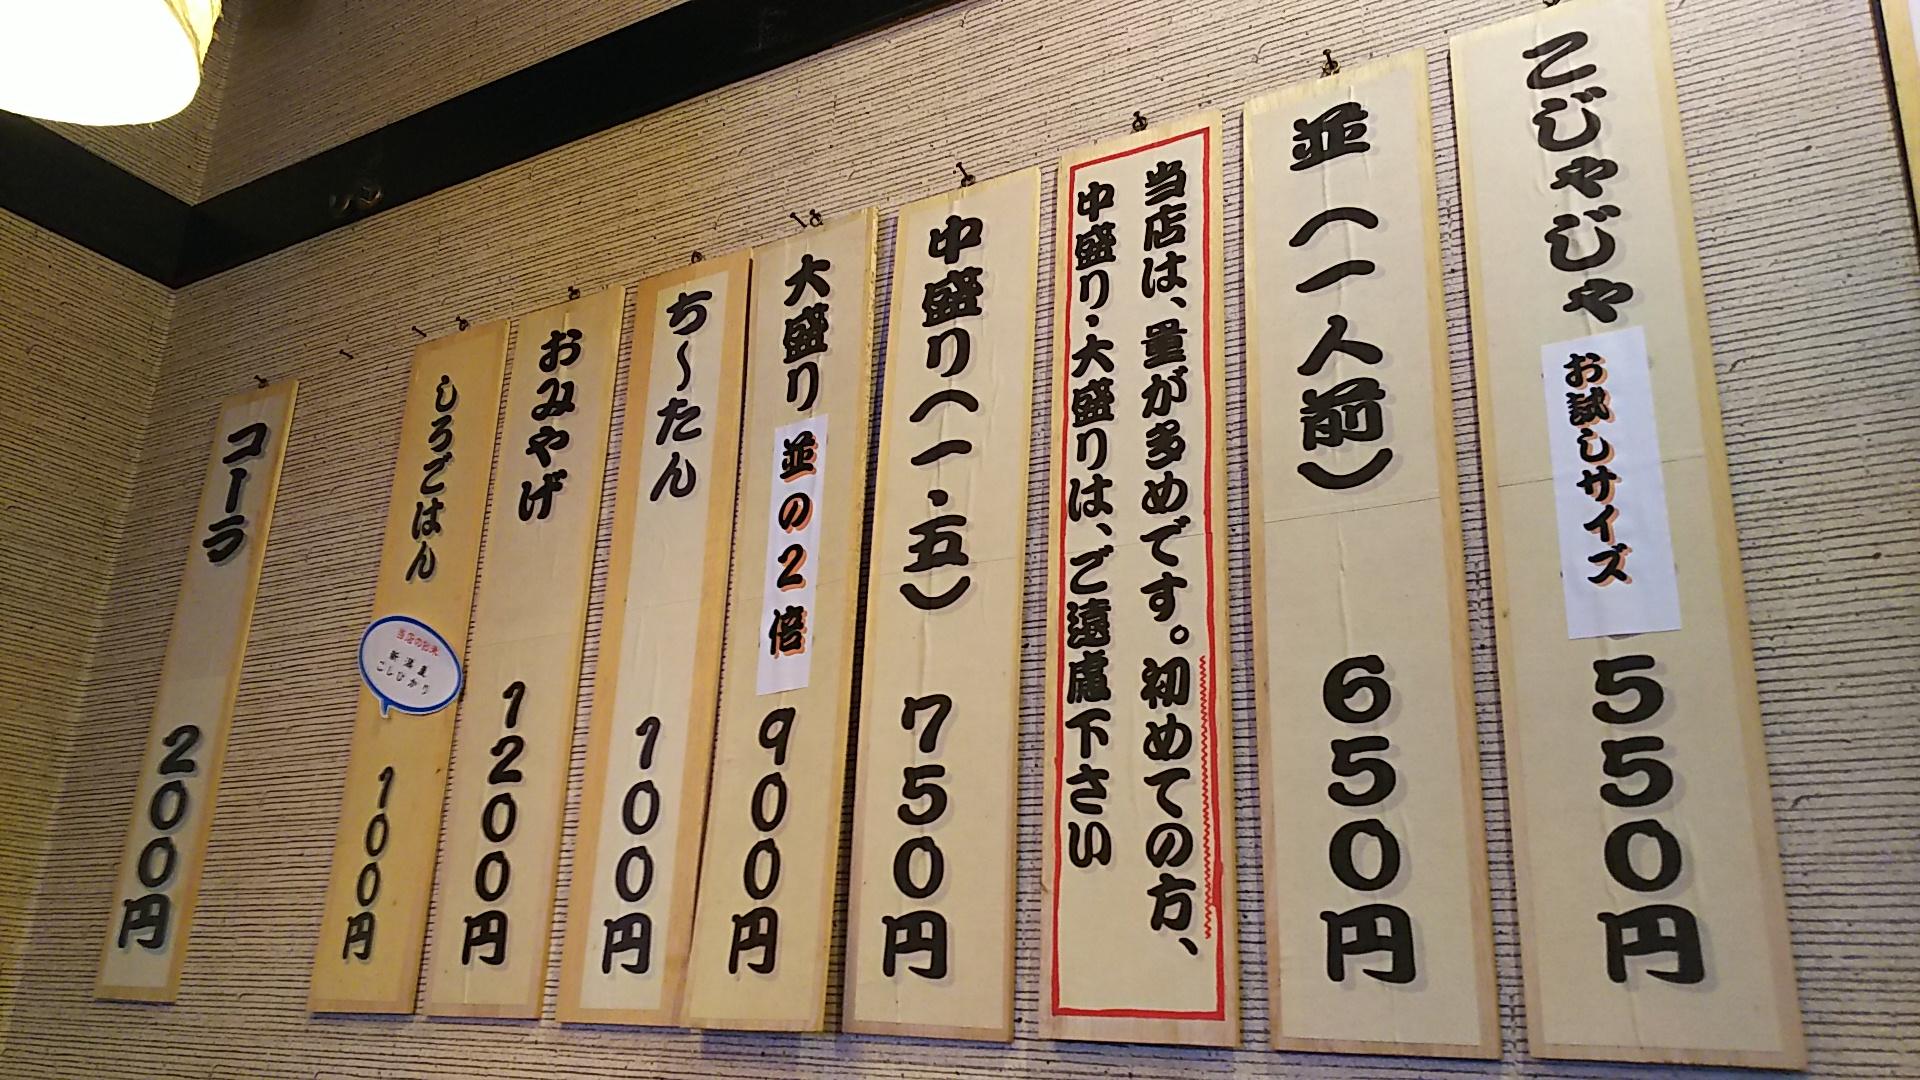 こじゃじゃ お試しサイズ 550円
並(一人前) 650円
当店は、量が多めです。初めての方、
中盛り・大盛りは、ご遠慮下さい
中盛り(一・五) 750円
大盛り 並の2倍 900円
ち〜たん 100円
おみやげ 1200円
しろごはん 100円
当店のお米
新潟産
こしひかり
コーラ 200円